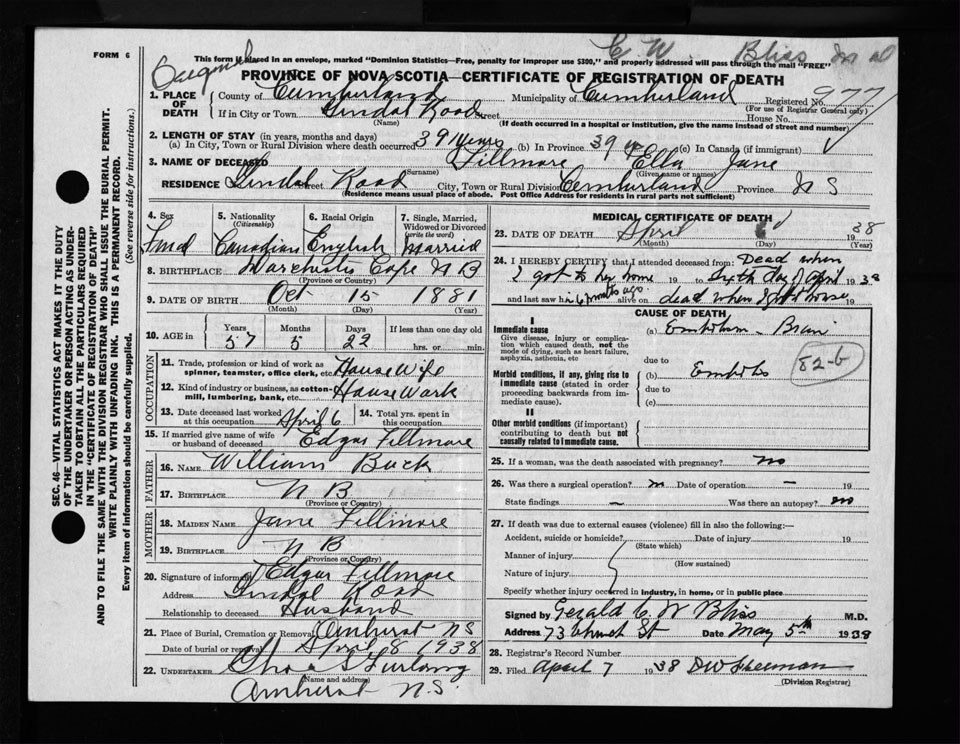 FORM 6
C W Bliss
This form if placed in an envelope, marked "Dominion Statistics—Free, penalty for improper use $300," and properly addressed will pass through the mail "FREE"
PROVINCE OF NOVA SCOTIA—CERTIFICATE OF REGISTRATION OF DEATH
1. PLACE OF DEATH
County of Cumberland Municipality of Cumberland Registered No. 977
(For use of Registrar General only)
If in City or Town Road Street House No.
(Name) (If death occurred in a hospital or institution, give the name instead of street and number)
2. LENGTH OF STAY (in years, months and days)
(a) In City, Town or Rural Division where death occurred 39 years (b) In Province 39 (c) In Canada (if immigrant)
3. NAME OF DECEASED Fillmore Ella Jane
(Surname) (Given name or names)
RESIDENCE Street Road City, Town or Rural Division Cumberland Province N S
(Residence means usual place of abode. Post Office Address for residents in rural parts not sufficient)
4. Sex
5. Nationality (Citizenship) Canadian
6. Racial Origin English
7. Single, Married, Widowed or Divorced (write the word) Married
8. BIRTHPLACE Cape N B
(Province or Country)
9. DATE OF BIRTH Oct 15 1881
(Month) (Day) (Year)
10. AGE in Years 57 Months 5 Days 22 If less than one day old hrs. or min.
OCCUPATION
11. Trade, profession or kind of work as spinner, teamster, office clerk, etc. House Wife
12. Kind of industry or business, as cotton-mill, lumbering, bank, etc. House Work
13. Date deceased last worked at this occupation April 6
14. Total yrs. spent in this occupation
15. If married give name of wife or husband of deceased Edgar Fillmore
FATHER
16. NAME William Buck
17. BIRTHPLACE N B
(Province or Country)
MOTHER
18. MAIDEN NAME Jane Fillmore
19. BIRTHPLACE N B
(Province or Country)
20. Signature of informant Edgar Fillmore
Address Road
Relationship to deceased Husband
21. Place of Burial, Cremation or Removal Amherst NS
Date of burial or removal April 8 1938
22. UNDERTAKER Chas S Furlong
(Name and address)
Amherst N.S.
MEDICAL CERTIFICATE OF DEATH
23. DATE OF DEATH April 6 1938
(Month) (Day) (Year)
24. I HEREBY CERTIFY that I attended deceased from: Dead when
I got to her home 19 to sixth day of April 1938
and last saw h 6 months ago alive on dead when I got house 19
CAUSE OF DEATH
I
Immediate cause
Give disease, injury or complication which caused death, not the mode of dying, such as heart failure, asphyxia, asthenia, etc
(a) Embolism Brain
due to
82-b
Morbid conditions, if any, giving rise to immediate cause (stated in order proceeding backwards from immediate cause).
(b)
due to
(c)
II
Other morbid conditions (if important) contributing to death but not causally related to immediate cause.
25. If a woman, was the death associated with pregnancy? no
26. Was there a surgical operation? no Date of operation – 19
State findings – Was there an autopsy? no
27. If death was due to external causes (violence) fill in also the following:—
Accident, suicide or homicide? Date of injury 19
(State which)
Manner of injury
(How sustained)
Nature of injury
Specify whether injury occurred in industry, in home, or in public place
Signed by Gerald C W Bliss M.D.
Address 73 Church St Date May 5th 1938
28. Registrar's Record Number
29. Filed April 7 1938
(Division Registrar)
SEC. 46—VITAL STATISTICS ACT MAKES IT THE DUTY
OF THE UNDERTAKER OR PERSON ACTING AS UNDERTAKER TO OBTAIN ALL THE PARTICULARS REQUIRED
IN THE "CERTIFICATE OF REGISTRATION OF DEATH"
AND TO FILE THE SAME WITH THE DIVISION REGISTRAR WHO SHALL ISSUE THE BURIAL PERMIT.
WRITE PLAINLY WITH UNFADING INK. THIS IS A PERMANENT RECORD.
Every item of information should be carefully supplied. (See reverse side for instructions.)